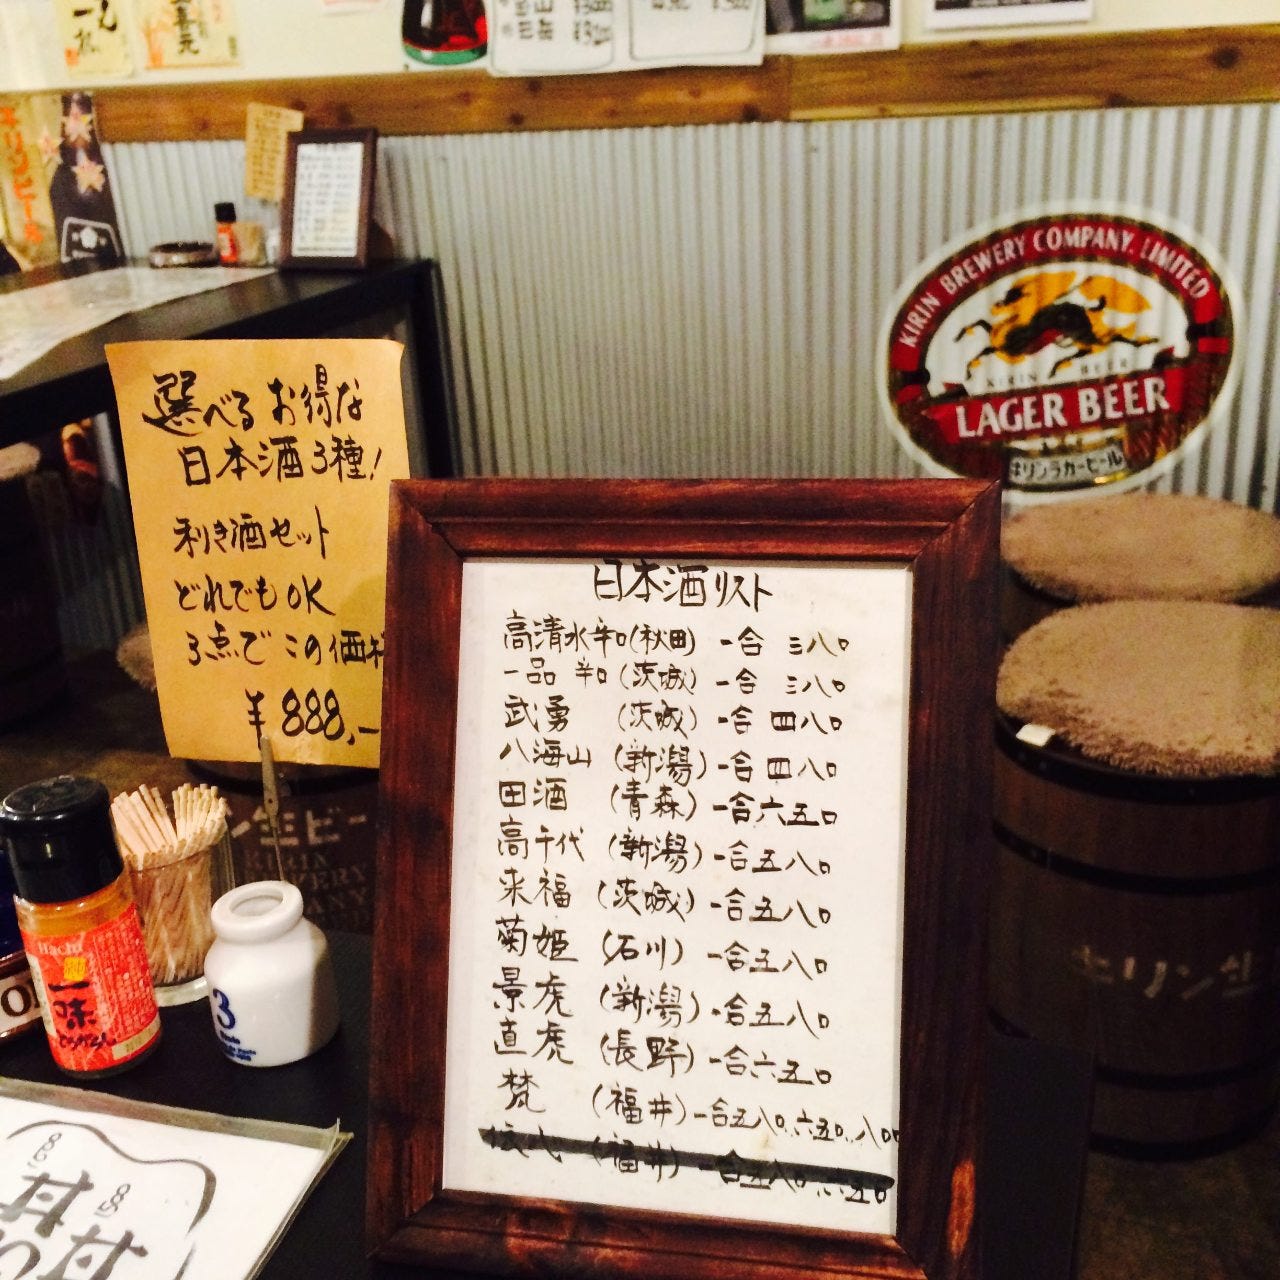 KIRIN BREWERY COMPANY, LIMITED
KIRIN BEER
LAGER BEER
キリンラガービール
選べるお得な
日本酒3種!
利き酒セット
どれでもOK
3点でこの価格
¥888,-
日本酒リスト
高清水辛口(秋田) 一合 三八〇
一品 辛口(茨城) 一合 三八〇
武勇 (茨城) 一合 四八〇
八海山 (新潟) 一合 四八〇
田酒 (青森) 一合 六五〇
高千代 (新潟) 一合 五八〇
来福 (茨城) 一合 五八〇
菊姫 (石川) 一合 五八〇
景虎 (新潟) 一合 五八〇
直虎 (長野) 一合 六五〇
梵 (福井) 一合 五八〇、六五〇、八〇〇
(福井) 一合 五八〇、六五〇
Hachi
一味
とうがらし
3
キリン生
丼
丼